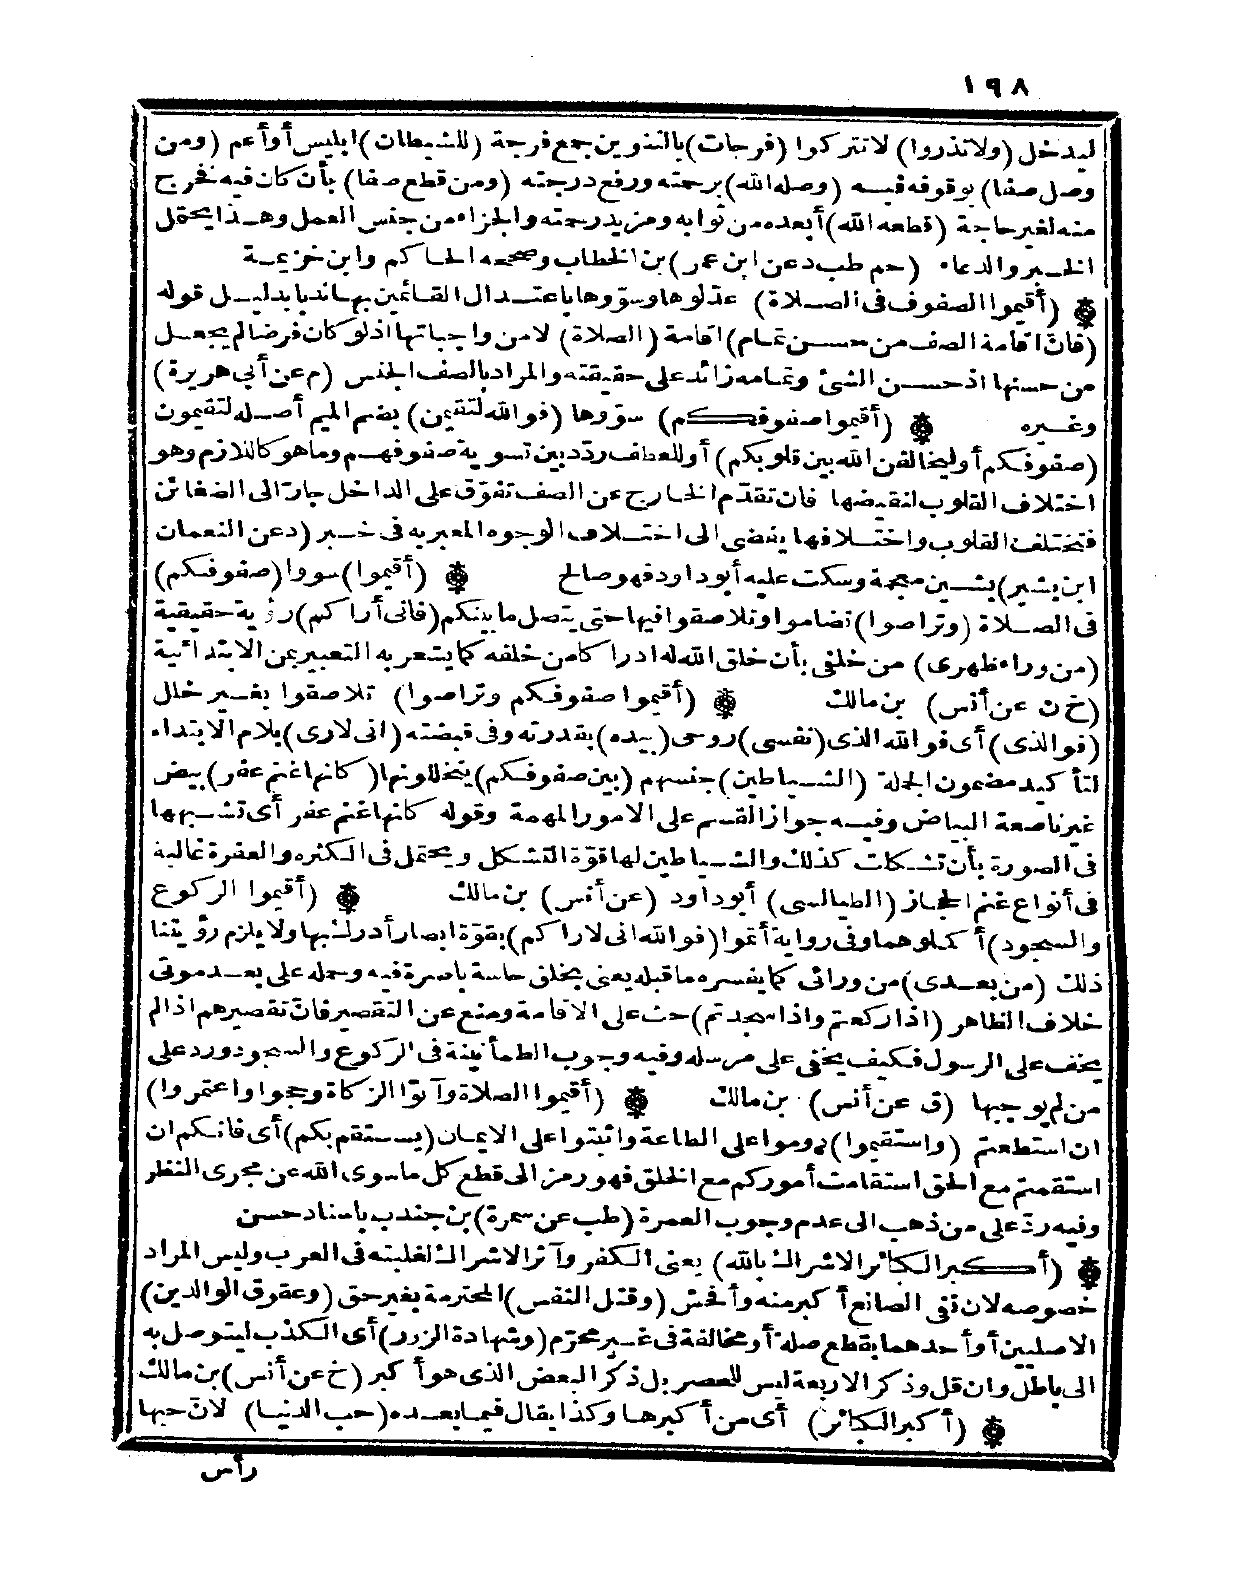 ١٩٨
ليدخل (ولا تذروا) لا تتركوا (فرجات) بالتنوين جمع فرجة (للشيطان) ابليس أو أعم (ومن
وصل صفا) بوقوفه فيه (وصله الله) برحمته ورفع درجته (ومن قطع صفا) بأن كان فيه فخرج
منه لغير حاجة (قطعه الله) أبعده من ثوابه ومزيد رحمته والجزاء من جنس العمل وهذا يحتمل
الخبر والدعاء (حم طب د عن ابن عمر) بن الخطاب وصححه الحاكم وابن خزيمة
(أقيموا الصفوف فى الصلاة) عدلوها وسوّوها باعتدال القائمين بها ندبا بدليل قوله
(فان اقامة الصف من حسن تمام) اقامة (الصلاة) لا من واجباتها اذ لو كان فرضا لم يجعل
من حسنها اذ حسن الشئ وتمامه زائد على حقيقته والمراد بالصف الجنس (م عن أبي هريرة)
وغيره (أقيموا صفوفكم) سوّوها (فوالله لتقيمن) بضم الميم أصله لتقيمون
(صفوفكم أو ليخالفن الله بين قلوبكم) أو للعطف ردّد بين تسوية صفوفهم وما هو كاللازم وهو
اختلاف القلوب لنقيضها فان تقدّم الخارج عن الصف تفوّق على الداخل جارّ الى الضغائن
فتختلف القلوب واختلافها يفضى الى اختلاف الوجوه المعبر به فى خبر (د عن النعمان
ابن بشير) بشين معجمة وسكت عليه أبو داود فهو صالح (أقيموا) سووا (صفوفكم)
فى الصلاة (وتراصوا) تضاموا وتلاصقوا فيها حتى يتصل ما بينكم (فانى أراكم) رؤية حقيقية
(من وراء ظهرى) من خلفي بأن خلق الله له ادراكا من خلفه كما يشعر به التعبير بمن الابتدائية
(خ ن عن أنس) بن مالك (أقيموا صفوفكم وتراصوا) تلاصقوا بغير خلل
(فوالذى) أى فوالله الذى (نفسى) روحى (بيده) بقدرته وفى قبضته (انى لارى) بلام الابتداء
لتأكيد مضمون الجملة (الشياطين) جنسهم (بين صفوفكم) يتخللونها (كانها غنم عفر) بيض
غير ناصعة البياض وفيه جواز القسم على الامور المهمة وقوله كانها غنم عفر أى تشبهها
فى الصورة بأن تشكلت كذلك والشياطين لها قوة التشكل ويحتمل فى الكثرة والعفرة غالبة
فى أنواع غنم الحجاز (الطيالسى) أبو داود (عن أنس) بن مالك (أقيموا الركوع
والسجود) أكملوهما وفى رواية أتموا (فوالله انى لاراكم) بقوّة ابصار أدرك بها ولا يلزم رؤيتنا
ذلك (من بعدى) من ورائى كما يفسره ما قبله يعنى بخلق حاسة باصرة فيه وحمله على بعد موتى
خلاف الظاهر (اذا ركعتم واذا سجدتم) حث على الاقامة ومنع عن التقصير فان تقصيرهم اذا لم
يخف على الرسول فكيف يخفى على مرسله وفيه وجوب الطمأنينة فى الركوع والسجود ورد على
من لم يوجبها (ق عن أنس) بن مالك (أقيموا الصلاة وآتوا الزكاة وحجوا واعتمروا)
ان استطعتم (واستقيموا) دوموا على الطاعة واثبتوا على الايمان (يستقم بكم) أى فانكم ان
استقمتم مع الحق استقامت أموركم مع الخلق فهو رمز الى قطع كل ما سوى الله عن مجرى النظر
وفيه ردّ على من ذهب الى عدم وجوب العمرة (طب عن سمرة) بن جندب باسناد حسن
(أكبر الكبائر الاشراك بالله) يعنى الكفر وآثر الاشراك لغلبته فى العرب وليس المراد
خصوصه لان نفى الصانع أكبر منه وأفحش (وقتل النفس) المحترمة بغير حق (وعقوق الوالدين)
الاصليين أو أحدهما بقطع صلة أو مخالفة فى غير محرّم (وشهادة الزور) أى الكذب ليتوصل به
الى باطل وان قل وذكر الاربعة ليس للحصر بل ذكر البعض الذى هو أكبر (خ عن أنس) بن مالك
(أكبر الكبائر) أى من أكبرها وكذا يقال فيما بعده (حب الدنيا) لان حبها
رأس